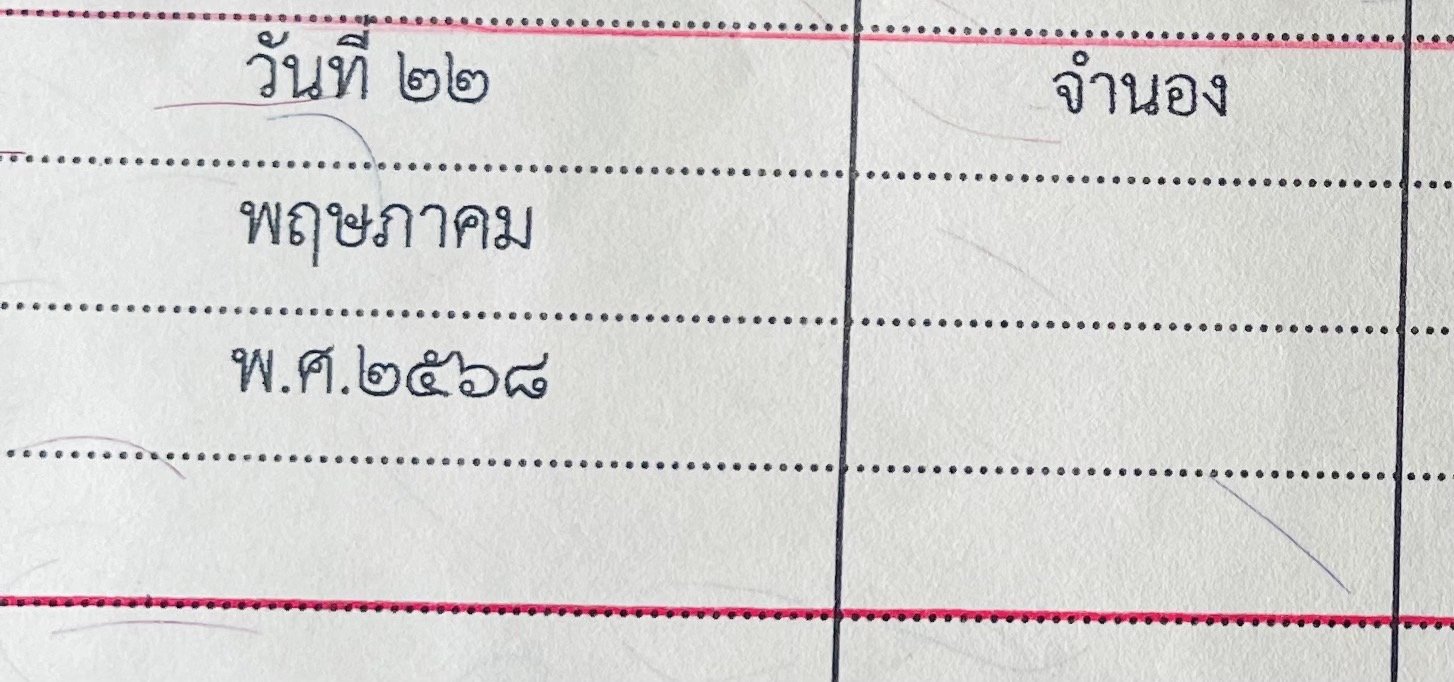 วันที่ ๒๒
จำนอง
พฤษภาคม
พ.ศ.๒๕๖๘